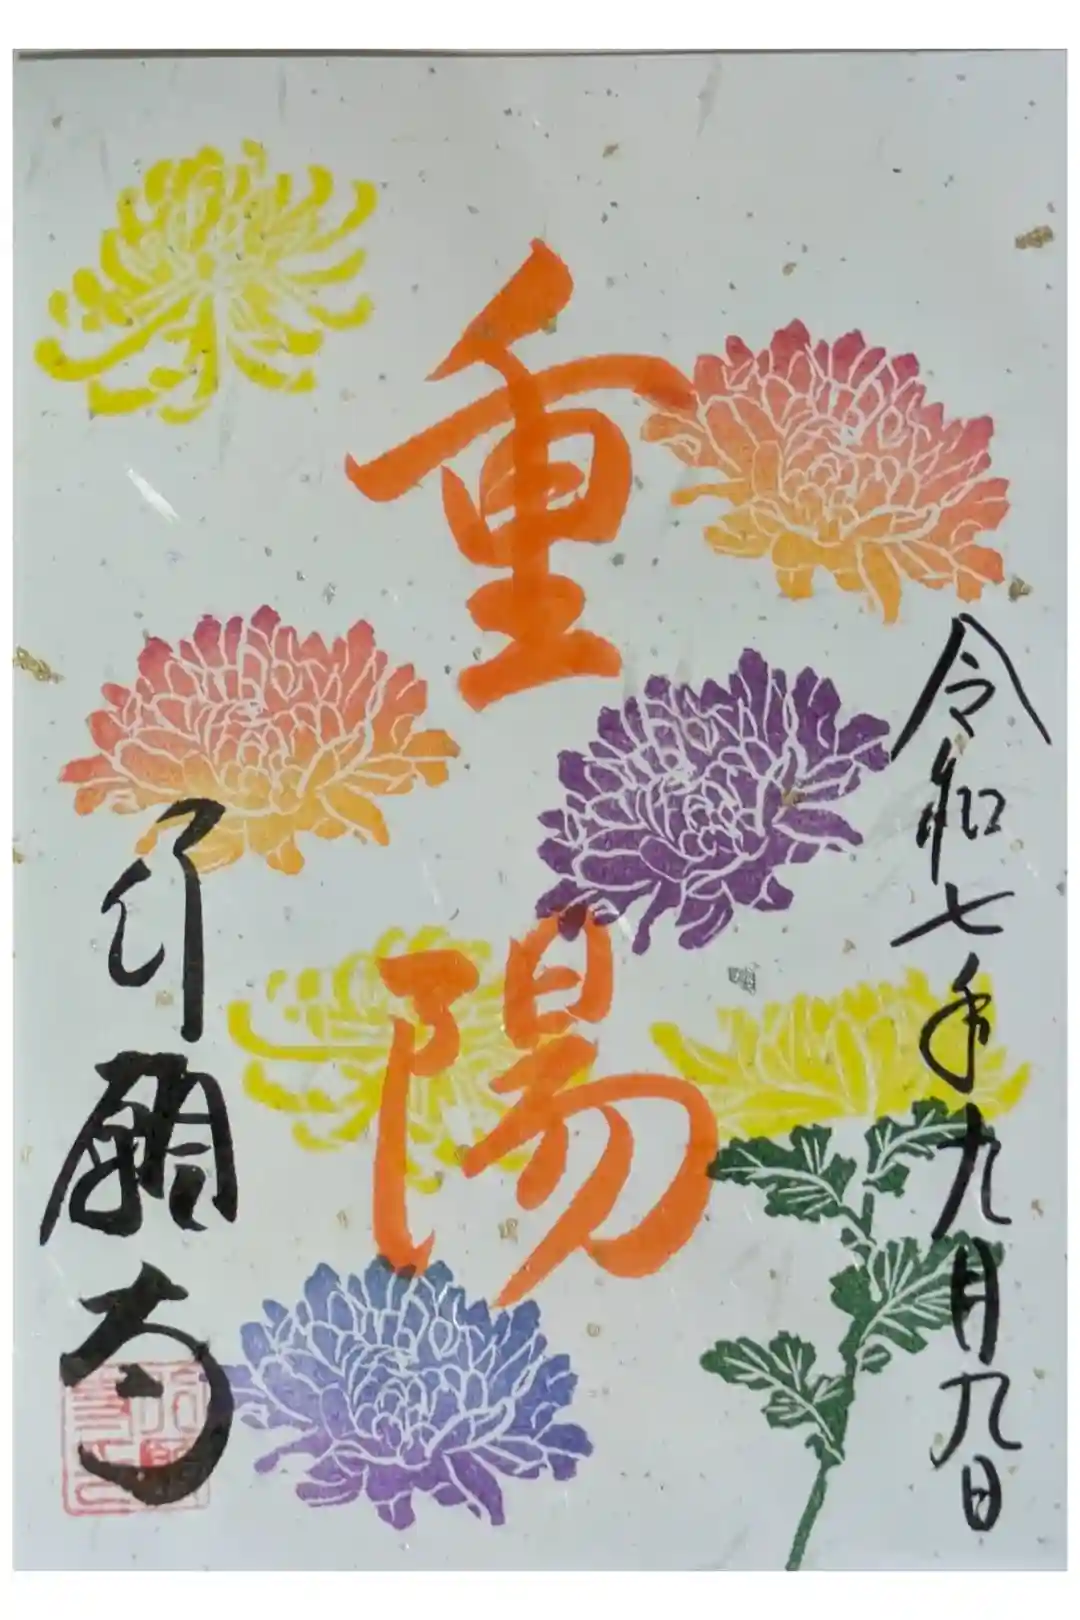 令和七年九月九日
重陽
引願寺